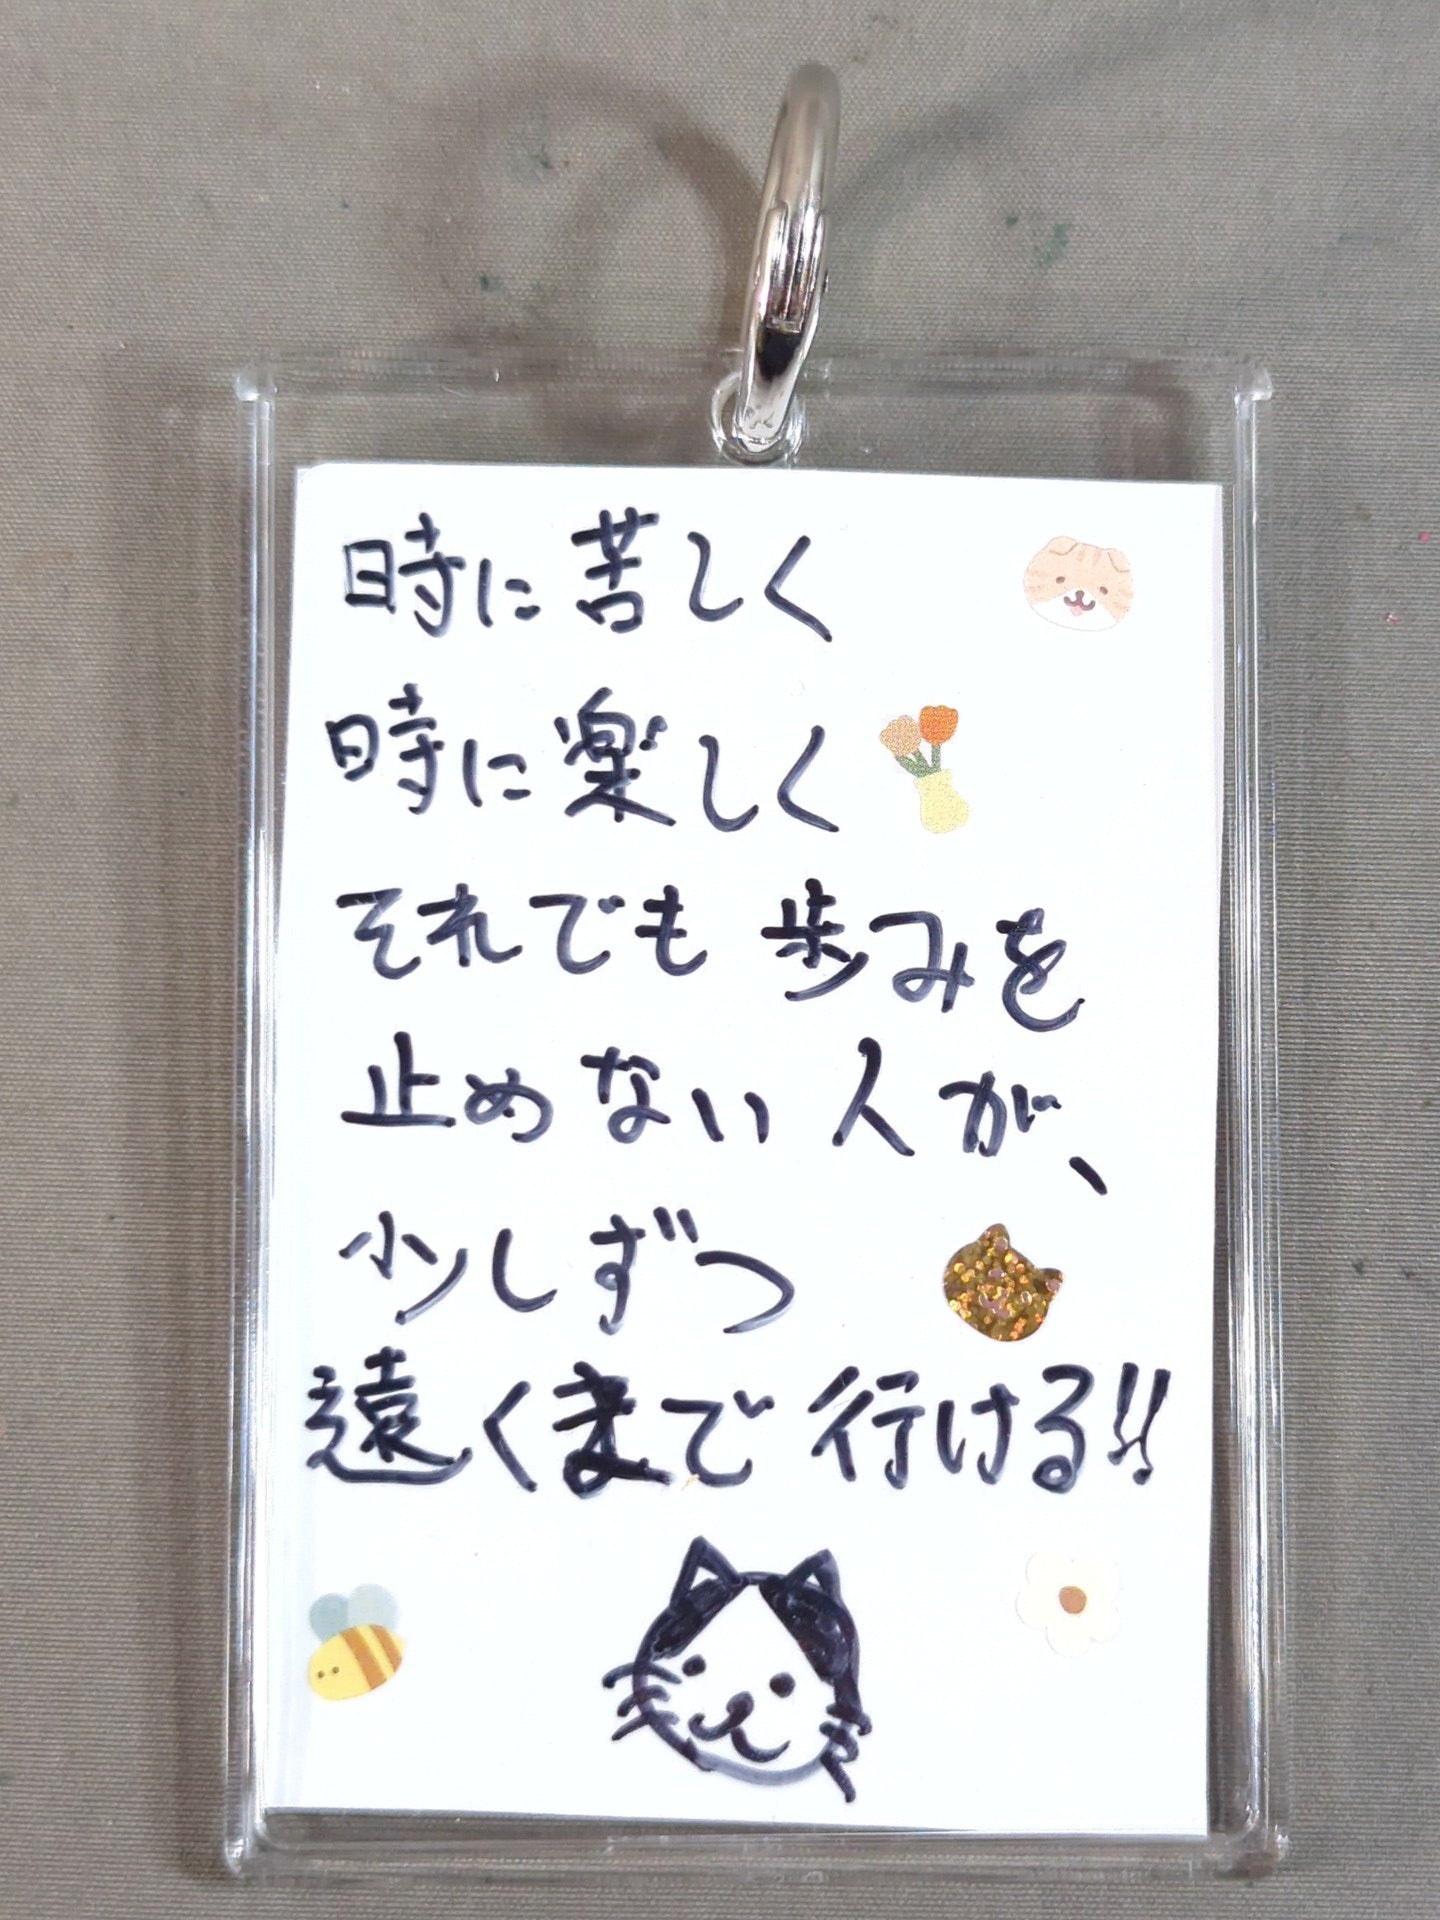 時に苦しく
時に楽しく
それでも歩みを
止めない人が、
少しずつ
遠くまで行ける!!